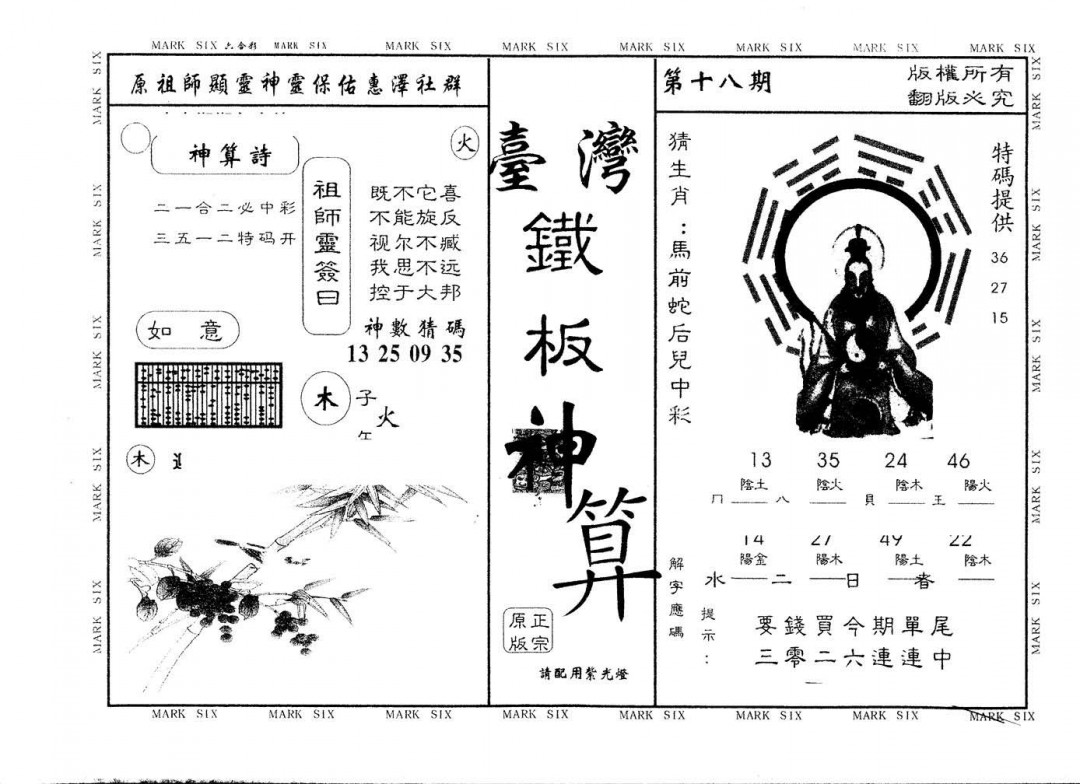 MARK SIX 六合彩 MARK SIX MARK SIX MARK SIX MARK SIX MARK SIX MARK SIX MARK SIX
原祖師顯靈神靈保佑惠澤社群
神算詩
火
二一合二必中彩
三五一二特码开
祖師靈簽曰
既不它喜
不能旋反
视尔不臧
我思不远
控于大邦
神數猜碼
13 25 09 35
如意
木
子
火
木
臺灣
鐵
板
神
算
正宗
原版
請配用紫光燈
第十八期
版權所有
翻版必究
猜生肖:馬前蛇后兒中彩
特碼提供
36
27
15
13 35 24 46
陰土 陰火 陰木 陽火
八 貝 王
14 27 49 22
陽金 陽木 陽土 陰木
水 二 日 春
解字應碼
提示:
要錢買今期單尾
三零二六連連中
MARK SIX MARK SIX MARK SIX MARK SIX MARK SIX MARK SIX MARK SIX MARK SIX
MARK SIX MARK SIX MARK SIX MARK SIX MARK SIX
MARK SIX MARK SIX MARK SIX MARK SIX MARK SIX